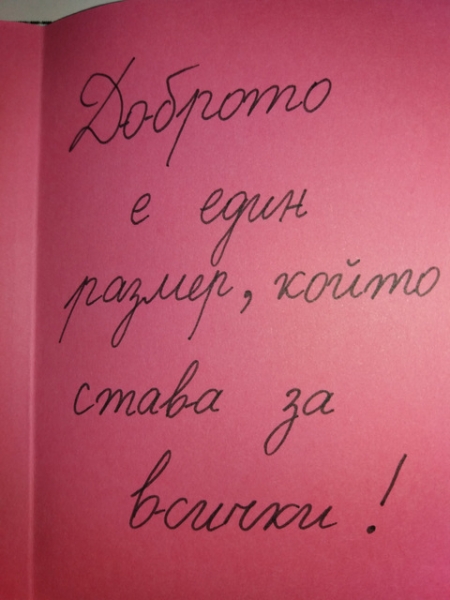 Доброто
е един
размер, който
става за
всички!